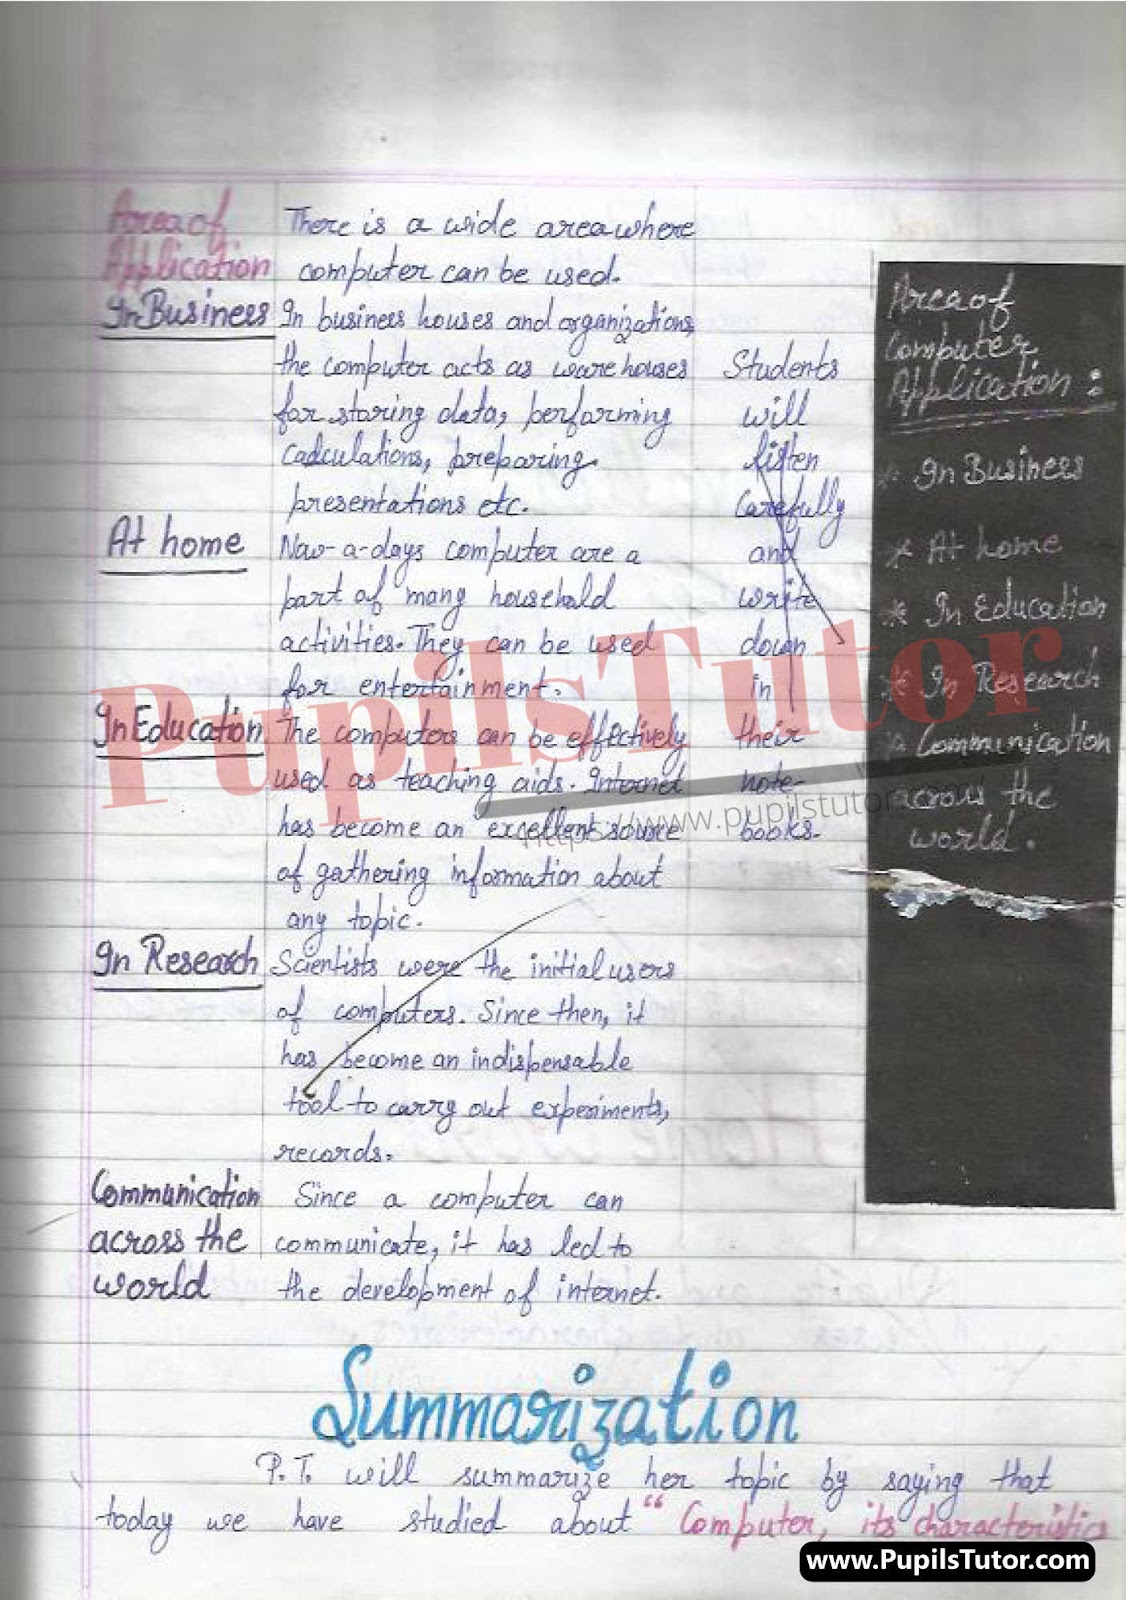 Area of
Application
There is a wide area where
computer can be used.
In Business
In business houses and organizations,
the computer acts as warehouses
for storing data, performing
cadculations, preparing
presentations etc.
At home
Now-a-days computer are a
part of many household
activities. They can be used
for entertainment.
In Education
The computors can be effectively
used as teaching aids. Internet
has become an excellent source
of gathering information about
any topic.
In Research
Scientists were the initial users
of computers. Since then, it
has become an indispensable
tool to carry out experiments,
records.
Communication
across the
world
Since a computer can
communicate, it has led to
the development of internet.
Students
will
listen
carefully
and
write
down
in
their
note-
books.
Area of
Computer
Application :
* In Business
* At home
* In Education
* In Research
* Communication
across the
world.
Summarization
P.T. will summarize her topic by saying that
today we have studied about " Computer, its characteristics
PupilsTutor
https://www.pupilstutor.
www.PupilsTutor.com